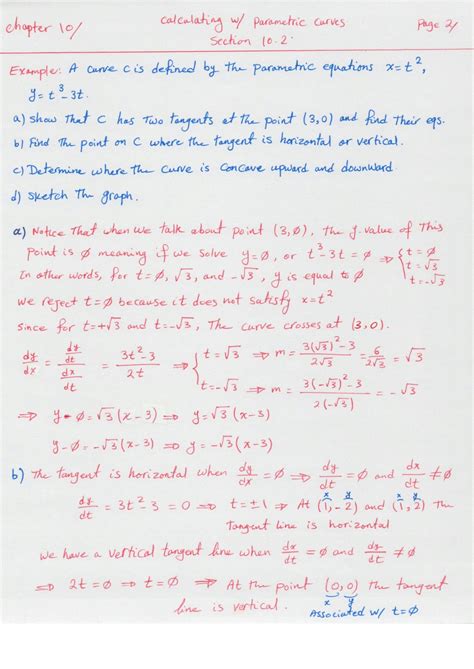 chapter 10/
Calculating w/ parametric curves
Section 10.2
Page 2/
Example: A curve C is defined by the parametric equations x=t²,
y=t³-3t.
a) show that C has Two tangents at the point (3,0) and find Their eqs.
b) Find The point on C where the tangent is horizontal or vertical.
c) Determine where The Curve is Concave upward and downward.
d) Sketch The graph.
a) Notice That when we talk about point (3,∅), The y-value of This
point is ∅ meaning if we solve y=∅, or t³-3t=∅ ⇒ { t=∅ t=√3 t=-√3
In other words, for t=∅, √3, and -√3, y is equal to ∅
we reject t=∅ because it does not satisfy x=t²
since for t=+√3 and t=-√3, The curve crosses at (3,0).
dy/dx = (dy/dt)/(dx/dt) = (3t²-3)/(2t) ⇒ { t=√3 ⇒ m = (3(√3)²-3)/(2√3) = 6/(2√3) = √3
t=-√3 ⇒ m = (3(-√3)²-3)/(2(-√3)) = -√3
⇒ y-∅=√3(x-3) ⇒ y=√3(x-3)
y-∅=-√3(x-3) ⇒ y=-√3(x-3)
b) The tangent is horizontal when dy/dx = ∅ ⇒ dy/dt = ∅ and dx/dt ≠ ∅
dy/dt = 3t²-3 = 0 ⇒ t=±1 ⇒ At (1,-2) and (1,2) The
x y x y
Tangent line is horizontal
we have a vertical tangent line when dx/dt = ∅ and dy/dt ≠ ∅
⇒ 2t=∅ ⇒ t=∅ ⇒ At the point (0,0) the tangent
line is vertical.
x y
Associated w/ t=∅